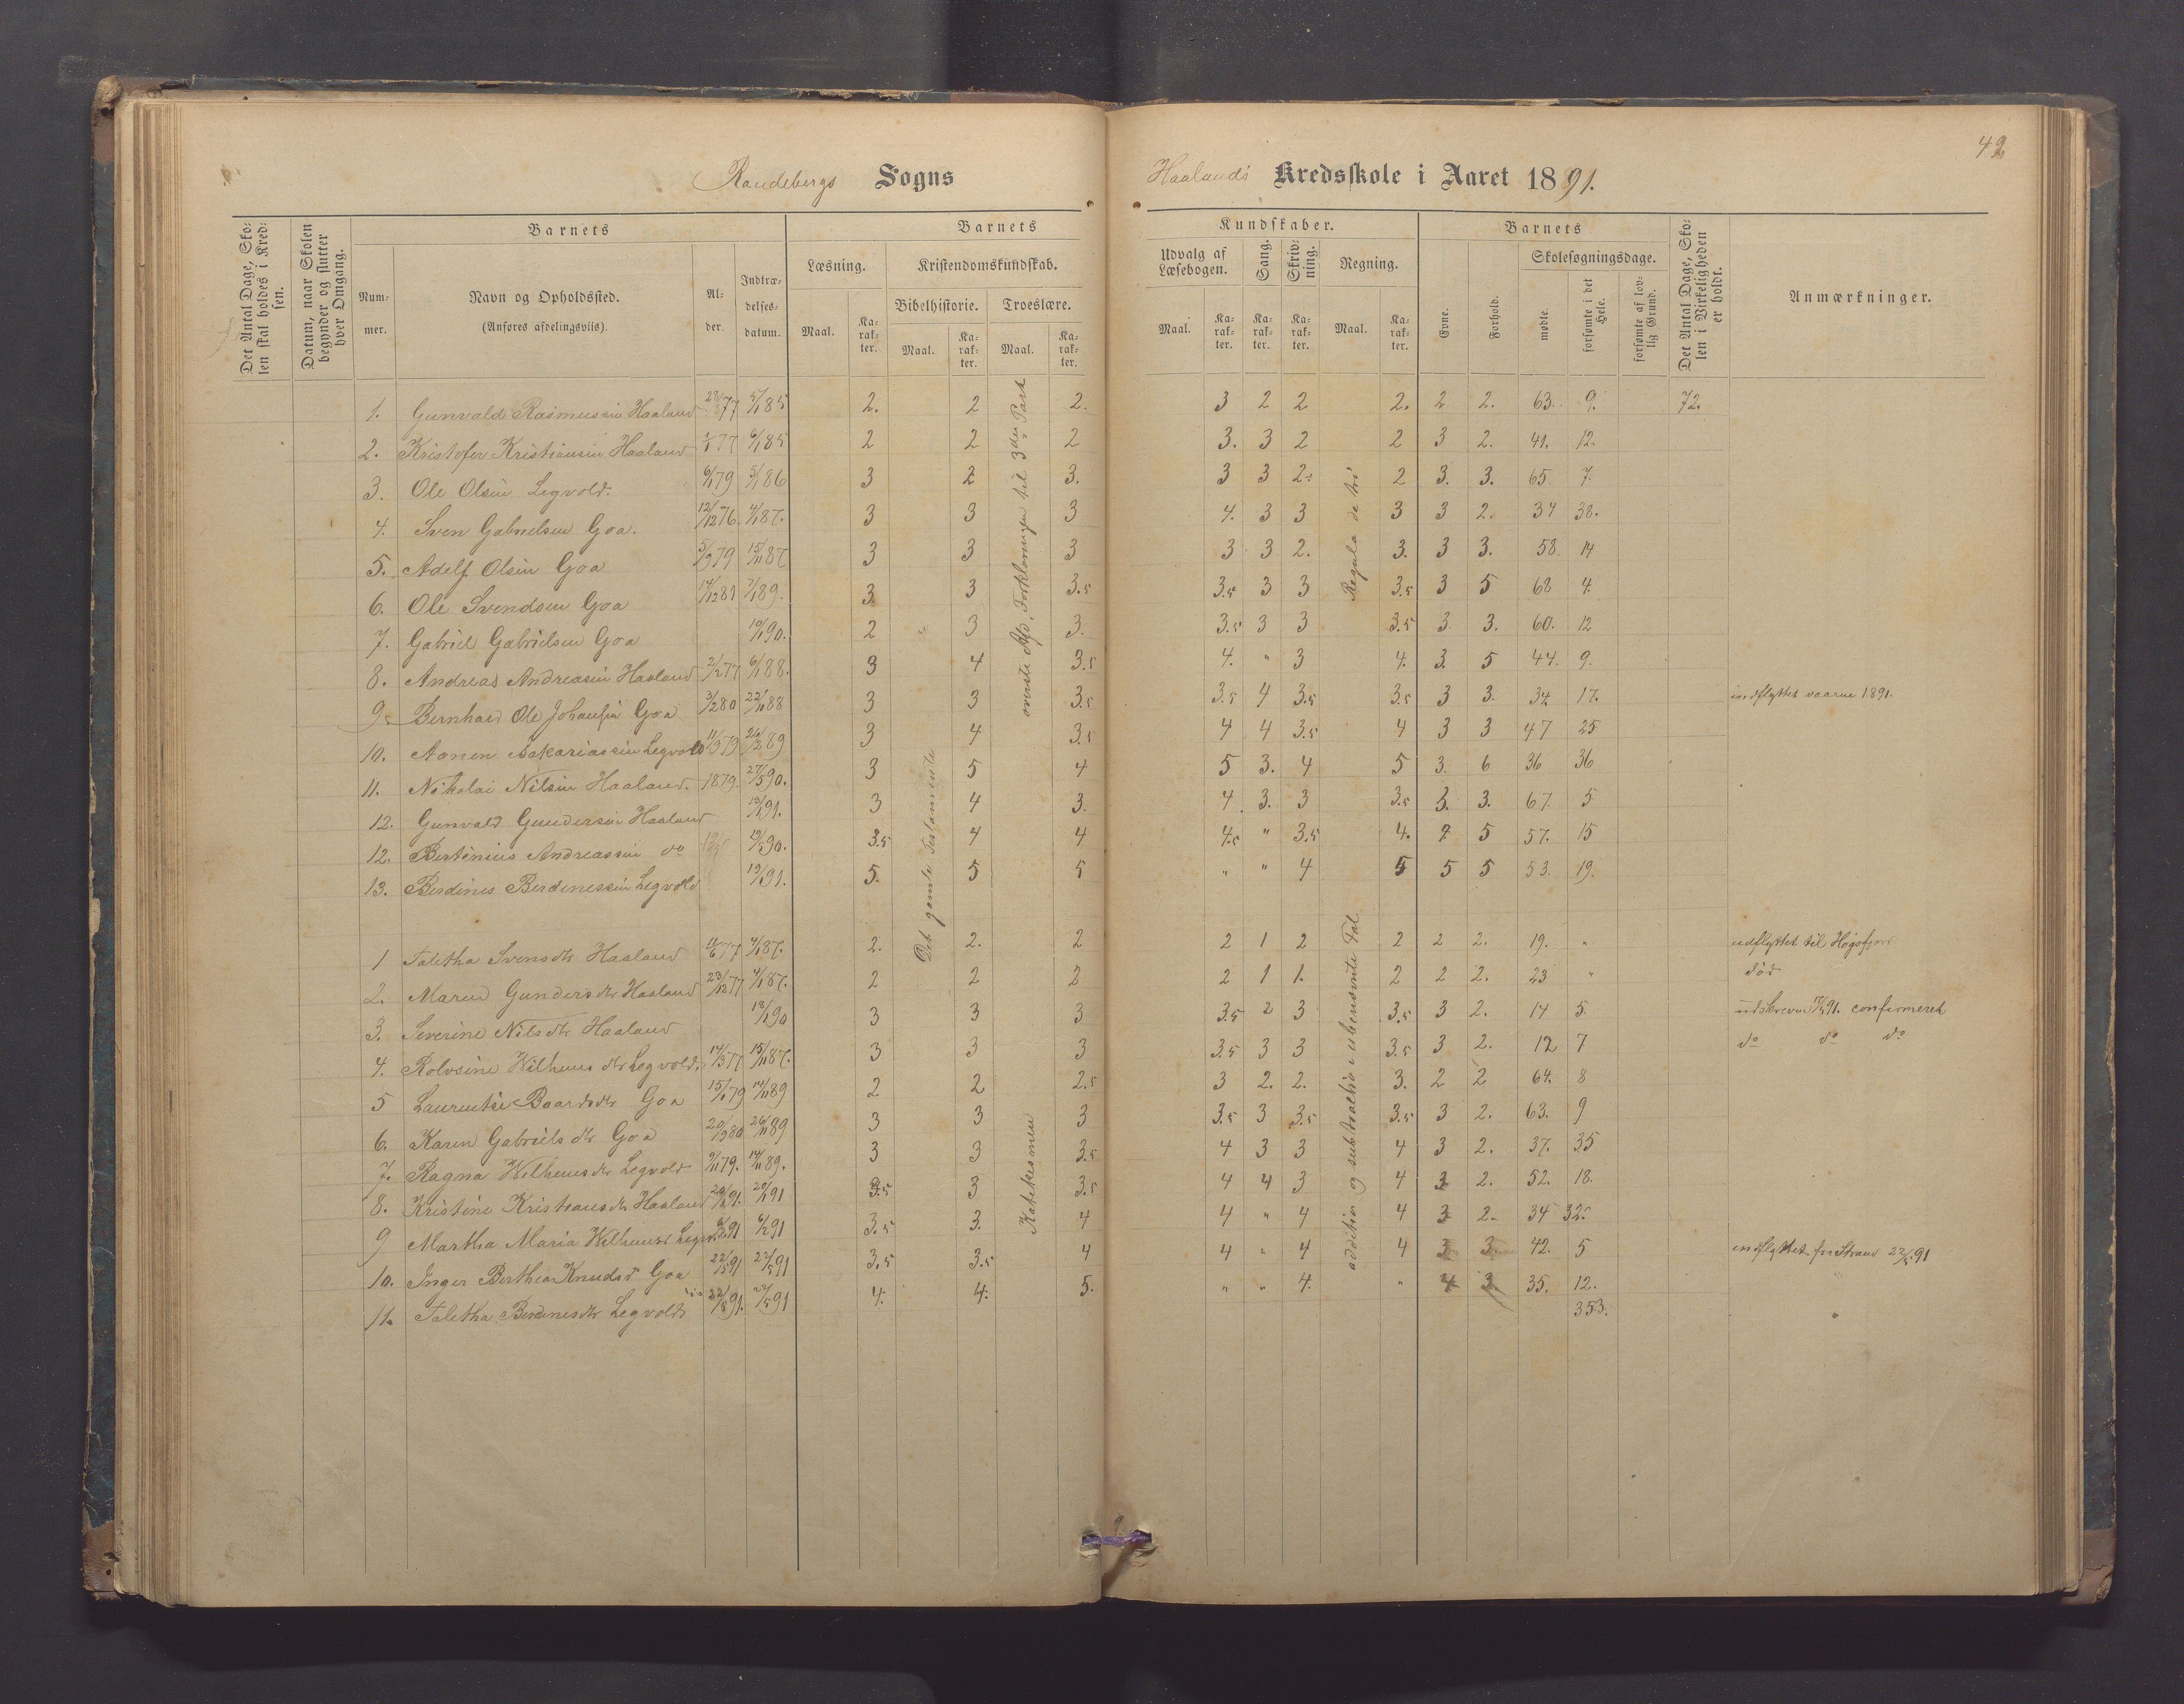 42
Randebergs Sogns Haalands Kredsskole i Aaret 1891.
Det Antal Dage, Skolen skal holdes i Kredsen.
Datum, naar Skolen begynder og slutter hver Omgang.
Barnets
Nummer.
Navn og Opholdssted.
(Anføres afdelingsviis).
Alder.
Indtrædelsesdatum.
Barnets Kundskaber.
Læsning.
Maal. Karakter.
Kristendomskundskab.
Bibelhistorie. Troeslære.
Maal. Karakter. Maal. Karakter.
Udvalg af Læsebogen.
Maal. Karakter.
Sang. Karakter.
Skrivning. Karakter.
Regning.
Maal. Karakter.
Barnets
Evne. Forhold.
Skolesøgningsdage.
mødte. forsømte i det Hele. forsømte af lovlig Grund.
Det Antal Dage, Skolen i Virkeligheden er holdt.
Anmærkninger.
1. Gunvald Rasmussen Haaland 77 5/1 85 2. 2 2. 3 2 2 2. 2 2. 63. 9. 72.
2. Kristofer Kristiansen Haaland 77 6/1 85 2 2 2 3. 3 2 2 3 2. 41. 12.
3. Ole Olsen Legvold. 6/1 79 5/1 86 3 2 3. 3 3 2. 2 3. 3. 65. 7.
4. Sven Gabrielsen Goa. 12/12 76. 4/1 87. 3 3 3 4. 3 3 3 3 2. 34 38.
5. Adolf Olsen Goa 5/3 79 15/11 87 3 3 3 3 3 2. 3. 3 3. 58. 14
6. Ole Svendsen Goa 14/12 81 7/1 89. 3 3 3.5 3.5 3 3 3.5 3 5 68 4.
7. Gabriel Gabrielsen Goa 10/1 90. 2 3 3. 3.5 3 3 3.5 3. 3. 60. 12
8. Andreas Andreasen Haaland 2/2 77 6/1 88. 3 4 3.5 4. " 3 4. 3. 5 44. 9.
9. Bernhard Ole Johansen Goa 3/2 80 22/10 88 3 3 3.5 3.5 4 3.5 3.5 3 3. 34 17. indflyttet vaaren 1891.
10. Aanen Sakariassen Legvold 11/3 79 26/2 89 3 4 3.5 4 4 3.5 4 3 3 47 25
11. Nikolai Nilsen Haaland. 1879. 27/5 90. 3 5 4 5 3. 4 5 3. 6 36 36
12. Gunvald Gundersen Haaland 91. 3 4 3. 4 3. 3 3.5 3. 3. 67. 5
12. Bertinius Andreassen do 90. 3.5 4 4 4.5 " 3.5 4. 5 57. 15
13. Berdines Berdinessen Legvold 91. 5. 5 5 " " 4 5 5 5 53. 19.
1 Talitha Svensdtr Haaland 77 4/1 87. 2. 2. 2 2 1 2 2 2 2. 19. " udflyttet til Høgsfjord
2. Maren Gundersdtr Haaland 23/12 77 4/1 87. 2 2 2 2 1 1. 2 2 2. 23 " død
3. Severine Nilsdtr Haaland 13/1 90 3 3 3 3.5 2 3 3.5 3 2. 14 5. udskreven 91. confirmeret
4. Rolvsine Wilhemsdtr Legvold. 14/3 77 15/11 87. 3 3 3 3.5 3 3 3.5 3 2. 12 7 do do do
5 Laurentse Baardsdtr Goa 15/1 79 89 2 2 2.5 3 2. 2. 3. 2 2 64. 8
6. Karen Gabrielsdtr Goa 20/9 80 26/11 89 3 3 3 3.5 3 3.5 3.5 3 2. 63. 9
7. Ragna Wilhemsdtr Legvold 9/11 79. 14/11 89. 3 3 3.5 4 3 3 4 3 2. 37. 35
8. Kristine Kristiansdtr Haaland 91. 91 3.5 3 3.5 4 4 3 4 3 2. 52. 18.
9 Martha Maria Wilhemsd 91 91 3.5 3. 4 4 " 4 4 3 2. 34 32.
10. Inger Berthea Knudsd Goa 22/5 91 22/5 91 3.5 3.5 4 4 " 4 4 3 3. 42. 5 indflyttet fra Strand 22/5 91
11. Talitha Berdinesdtr Legvold 91. 91 4. 4. 5. " " 4. " 4 3 35. 12.
353.
Det gamle Testamente
øverste Afd. Forklaringen til 3die Part
Katekismen
Regula de tri
addition og subtraktion i ubenævnte Tal